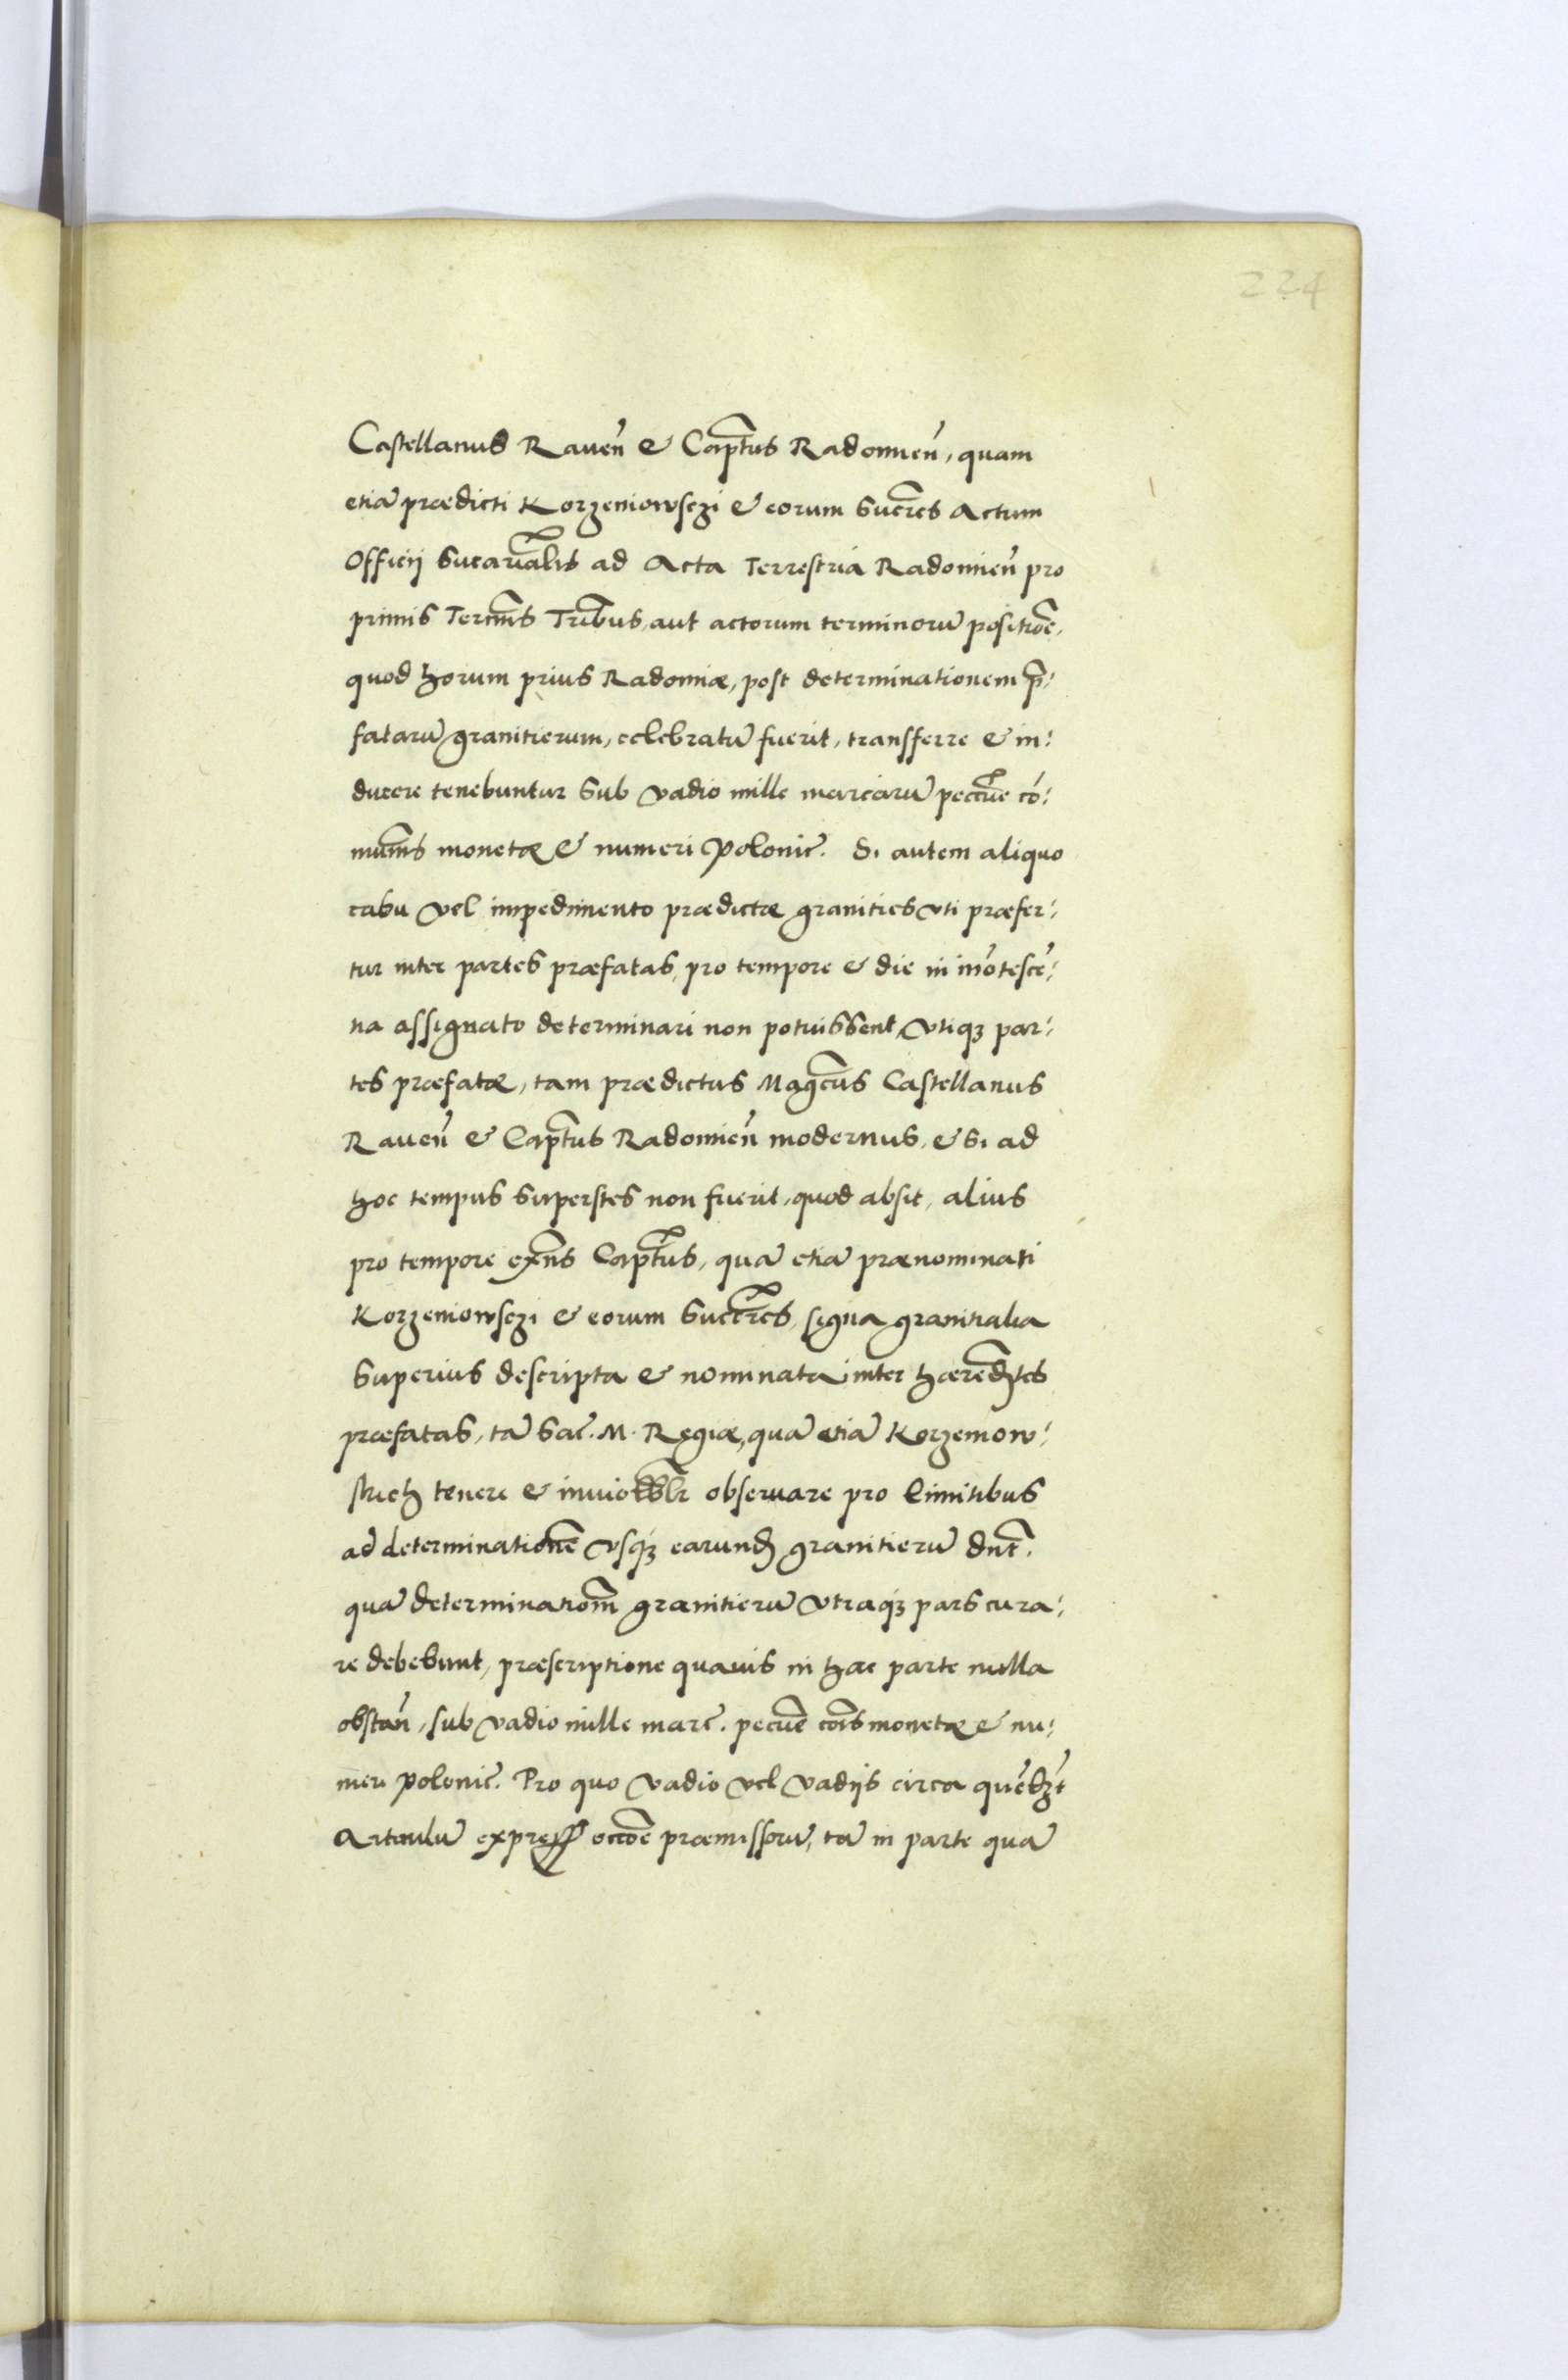 224
Castellanus Raueñ & Capt̃us Radomieñ, quam
etiã prædicti Korzeniowsczi & eorum Succr̃es Actum
Officij Succavãlis ad Acta Terrestria Radomieñ pro
primis Termĩs Trĩbus, aut actorum terminorũ positiõe,
quod horum prius Radomiæ, post determinationem p̃:
fatarũ granitierum, celebratũ fuerit, transferre & in:
ducere tenebuntur Sub vadio mille marcarũ peccũe cõ:
mum̃s monetæ & numeri Polonic̃. Si autem aliquo
casu vel impedimento prædictæ granities vti præfer:
tur inter partes præfatas, pro tempore & die in iñotescẽ:
tia assignato determinari non potuissent, Vtiqꝫ par:
tes præfatæ, tam prædictus Magc̃us Castellanus
Raueñ & Capt̃us Radomieñ modernus, & si ad
hoc tempus superstes non fuerit, quod absit, alius
pro tempore exñs Capt̃us, quã etiã prænominati
Korzeniowsczi & eorum Succr̃es, signa granitialia
Superius descripta & nominata inter hæredit̃es
præfatas, tã Sac̃. M. Regiæ, quã etiã Korzeniow:
skich tenere & inuiolãblr observare pro limitibus
ad determinationẽ vsqꝫ earund̃ granitierũ dnt̃.
quã determinatiom̃ granitierũ vtraqꝫ pars cura:
re debebunt, præscriptione quauis in hac parte nulla
obstañ, sub vadio mille marc̃. pecũe cõis monetæ & nu:
meri Polonic̃. Pro quo vadio vel vadijs circa quẽlꝫt
Articulũ express̃ occõe præmissorũ, tã in parte quã